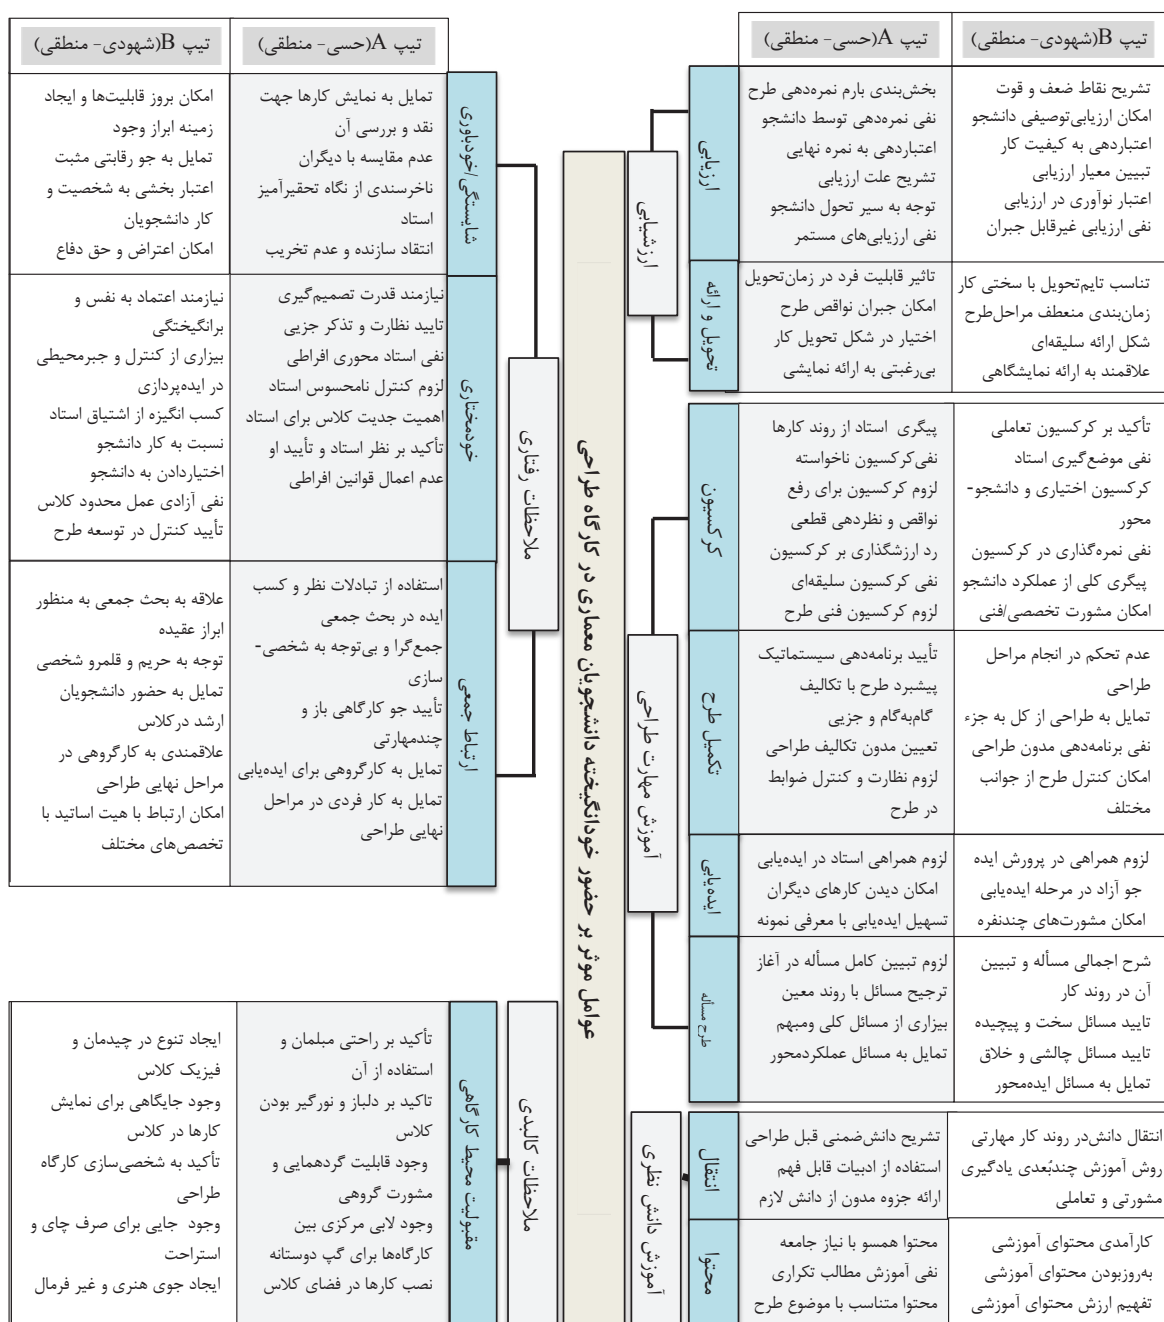 تیپ B(شهودی- منطقی)
تیپ A(حسی- منطقی)
ارزشیابی
ارزیابی
بخش‌بندی بارم نمره‌دهی طرح
نفی نمره‌دهی توسط دانشجو
اعتباردهی به نمره نهایی
تشریح علت ارزیابی
توجه به سیر تحول دانشجو
نفی ارزیابی‌های مستمر
تشریح نقاط ضعف و قوت
امکان ارزیابی‌توصیفی دانشجو
اعتباردهی به کیفیت کار
تبیین معیار ارزیابی
اعتبار نوآوری در ارزیابی
نفی ارزیابی غیرقابل جبران
تحویل و ارائه
تاثیر قابلیت فرد در زمان‌تحویل
امکان جبران نواقص طرح
اختیار در شکل تحویل کار
بی‌رغبتی به ارائه نمایشی
تناسب تایم‌تحویل با سختی کار
زمان‌بندی منعطف مراحل‌طرح
شکل ارائه سلیقه‌ای
علاقمند به ارائه نمایشگاهی
آموزش مهارت طراحی
کرکسیون
پیگری استاد از روند کارها
نفی‌کرکسیون ناخواسته
لزوم کرکسیون برای رفع
نواقص و نظردهی قطعی
رد ارزشگذاری بر کرکسیون
نفی کرکسیون سلیقه‌ای
لزوم کرکسیون فنی طرح
تأکید بر کرکسیون تعاملی
نفی موضع‌گیری استاد
کرکسیون اختیاری و دانشجو-
محور
نفی نمره‌گذاری در کرکسیون
پیگری کلی از عملکرد دانشجو
امکان مشورت تخصصی/فنی
تکمیل طرح
تأیید برنامه‌دهی سیستماتیک
پیشبرد طرح با تکالیف
گام‌به‌گام و جزیی
تعیین مدون تکالیف طراحی
لزوم نظارت و کنترل ضوابط
در طرح
عدم تحکم در انجام مراحل
طراحی
تمایل به طراحی از کل به جزء
نفی برنامه‌دهی مدون طراحی
امکان کنترل طرح از جوانب
مختلف
ایده‌یابی
لزوم همراهی استاد در ایده‌یابی
امکان دیدن کارهای دیگران
تسهیل ایده‌یابی با معرفی نمونه
لزوم همراهی در پرورش ایده
جو آزاد در مرحله ایده‌یابی
امکان مشورت‌های چندنفره
طرح مسأله
لزوم تبیین کامل مسأله در آغاز
ترجیح مسائل با روند معین
بیزاری از مسائل کلی ومبهم
تمایل به مسائل عملکردمحور
شرح اجمالی مسأله و تبیین
آن در روند کار
تایید مسائل سخت و پیچیده
تایید مسائل چالشی و خلاق
تمایل به مسائل ایده‌محور
آموزش دانش نظری
انتقال
تشریح دانش‌ضمنی قبل طراحی
استفاده از ادبیات قابل فهم
ارائه جزوه مدون از دانش لازم
انتقال دانش‌در روند کار مهارتی
روش آموزش چندبُعدی یادگیری
مشورتی و تعاملی
محتوا
محتوا همسو با نیاز جامعه
نفی آموزش مطالب تکراری
محتوا متناسب با موضوع طرح
کارآمدی محتوای آموزشی
به‌روزبودن محتوای آموزشی
تفهیم ارزش محتوای آموزشی
عوامل موثر بر حضور خودانگیخته دانشجویان معماری در کارگاه طراحی
تیپ A(حسی- منطقی)
تیپ B(شهودی- منطقی)
ملاحظات رفتاری
شایستگی/خودباوری
تمایل به نمایش کارها جهت
نقد و بررسی آن
عدم مقایسه با دیگران
ناخرسندی از نگاه تحقیرآمیز
استاد
انتقاد سازنده و عدم تخریب
امکان بروز قابلیت‌ها و ایجاد
زمینه ابراز وجود
تمایل به جو رقابتی مثبت
اعتبار بخشی به شخصیت و
کار دانشجویان
امکان اعتراض و حق دفاع
خودمختاری
نیازمند قدرت تصمیم‌گیری
تایید نظارت و تذکر جزیی
نفی استاد محوری افراطی
لزوم کنترل نامحسوس استاد
اهمیت جدیت کلاس برای استاد
تأکید بر نظر استاد و تأیید او
عدم اعمال قوانین افراطی
نیازمند اعتماد به نفس و
برانگیختگی
بیزاری از کنترل و جبرمحیطی
در ایده‌پردازی
کسب انگیزه از اشتیاق استاد
نسبت به کار دانشجو
اختیاردادن به دانشجو
نفی آزادی عمل محدود کلاس
تأیید کنترل در توسعه طرح
ارتباط جمعی
استفاده از تبادلات نظر و کسب
ایده در بحث جمعی
جمع‌گرا و بی‌توجه به شخصی-
سازی
تأیید جو کارگاهی باز و
چندمهارتی
تمایل به کارگروهی برای ایده‌یابی
تمایل به کار فردی در مراحل
نهایی طراحی
علاقه به بحث جمعی به منظور
ابراز عقیده
توجه به حریم و قلمرو شخصی
تمایل به حضور دانشجویان
ارشد درکلاس
علاقمندی به کارگروهی در
مراحل نهایی طراحی
امکان ارتباط با هیت اساتید با
تخصص‌های مختلف
ملاحظات کالبدی
مقبولیت محیط کارگاهی
تأکید بر راحتی مبلمان و
استفاده از آن
تاکید بر دلباز و نورگیر بودن
کلاس
وجود قابلیت گردهمایی و
مشورت گروهی
وجود لابی مرکزی بین
کارگاه‌ها برای گپ دوستانه
نصب کارها در فضای کلاس
ایجاد تنوع در چیدمان و
فیزیک کلاس
وجود جایگاهی برای نمایش
کارها در کلاس
تأکید به شخصی‌سازی کارگاه
طراحی
وجود جایی برای صرف چای و
استراحت
ایجاد جوی هنری و غیر فرمال